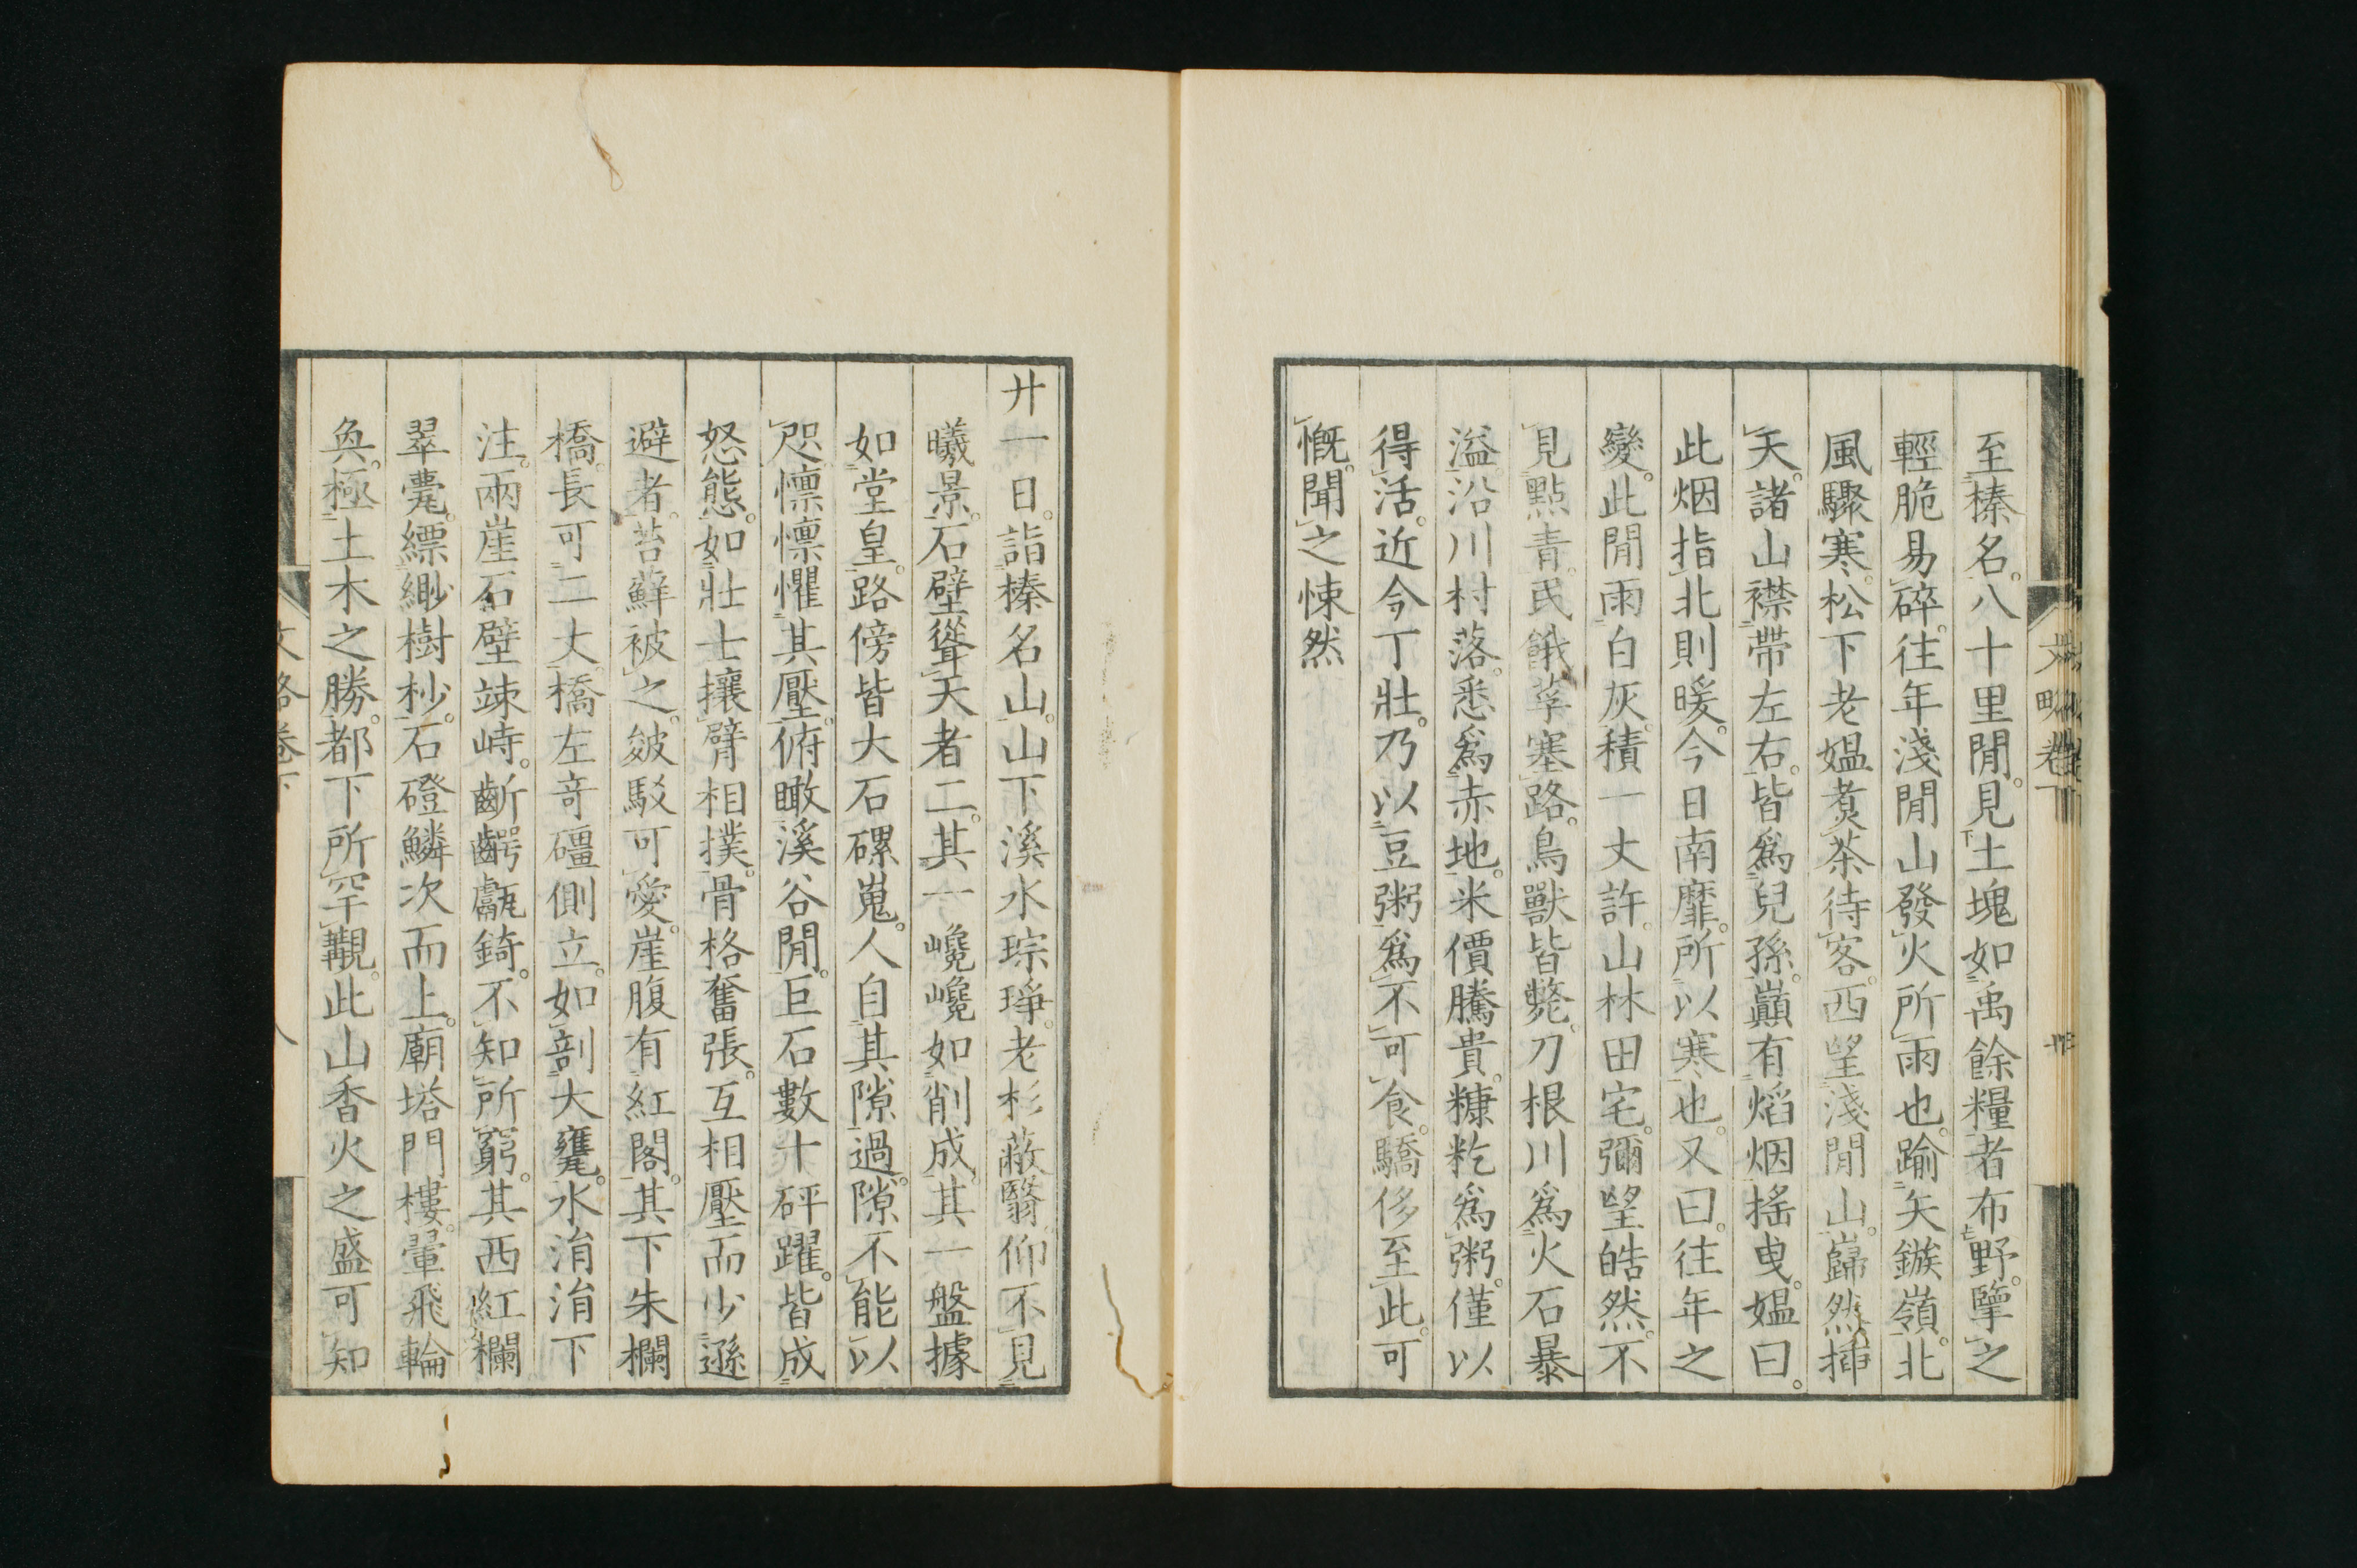 至榛名。八十里閒。見土塊如禹餘糧者布野。擘之
輕脆易碎。往年淺閒山發火所雨也。踰矢鏃嶺。北
風驟寒。松下老媼煑茶待客。西望淺閒山。巋然插
天。諸山襟帶左右。皆爲兒孫。巔有熖烟搖曳。媼曰。
此烟指北則暖。今日南靡。所以寒也。又曰。往年之
變。此閒雨白灰。積一丈許。山林田宅。彌望皓然。不
見點青。民餓莩塞路。鳥獸皆斃。刀根川爲火石暴
溢。沿川村落。悉爲赤地。米價騰貴。糠籺爲粥。僅以
得活。近今丁壯。乃以豆粥爲不可食。驕侈至此。可
慨。聞之悚然
廿一日。詣榛名山。山下溪水琮琤。老杉蔽翳。仰不見
曦景。石壁聳天者二。其一巉巉如削成。其一盤據
如堂皇。路傍皆大石磥嵬。人自其隙過。隙不能以
咫。懍懍懼其壓。俯瞰溪谷閒。巨石數十砰躍。皆成
怒態。如壯士攘臂相撲。骨格奮張。互相壓而少遜
避者。苔蘚被之。皴駁可愛。崖腹有紅閣。其下朱欄
橋。長可二丈。橋左奇礓側立。如剖大甕。水涓涓下
注。兩崖石壁竦峙。齗齶甗錡。不知所窮。其西紅欄
翠甍。縹緲樹杪。石磴鱗次而上。廟塔門樓。翬飛輪
奐。極土木之勝。都下所罕覯。此山香火之盛可知